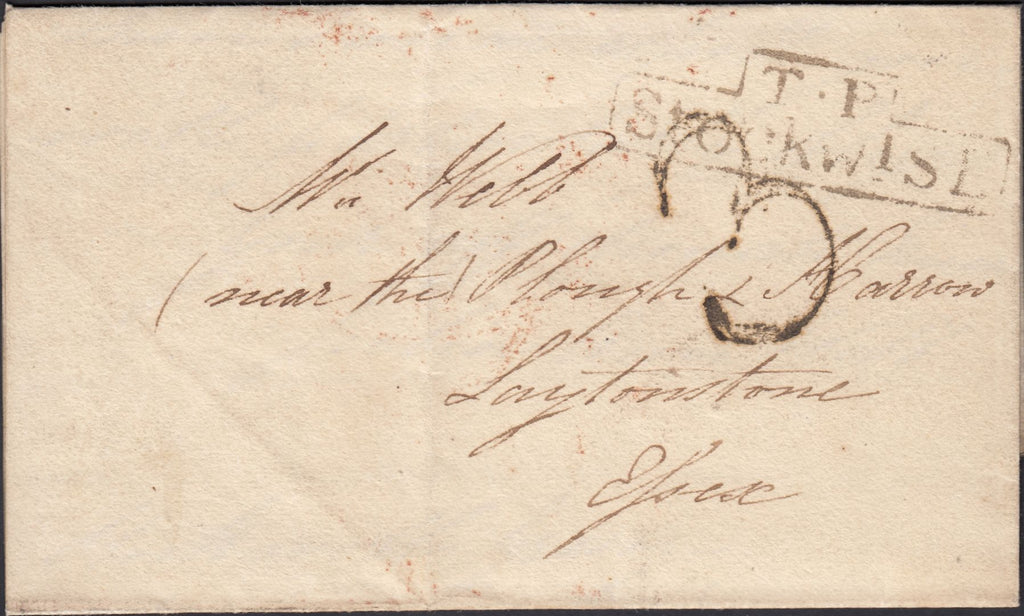 T.P
Stockwise
3
Mr Webb
(near the) Plough & Harrow
Laytonstone
Essex